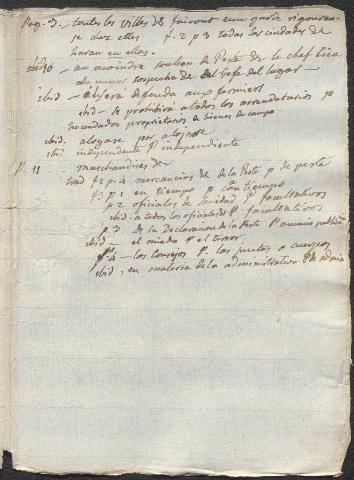 Pag. 3. toutes les villes de feront une garde rigoureu-
se diez elles f. 2 p 3 todas las ciudades de
haran en ellas.
ibid - au moindre soubson de Peste de le chef lieu
la menor sospecha de del Gefe del lugar -
ibid - il sera defendu aux fermiers
ibid - se prohibirá a todos los arrendatarios po
hacendados propietarios o tienes de campo
ibid. alojase por alojase
ibid independente P. independiente
P. 11 - marchandises de
trad f 2 p. 4 mercancias de de la Peste p de peste
f 3 p. 1 en tiempo p con tiempo
p 2 oficiales de sanidad P facultativos
ibid. a todos los oficiales P facultativos
p. 3 de la Declaracion de la Peste P anuncio
ibid - el miedo P el terror
f. 4 - los Consejos P. las juntas o cuerpos
ibid, en materia de la administrativa P de